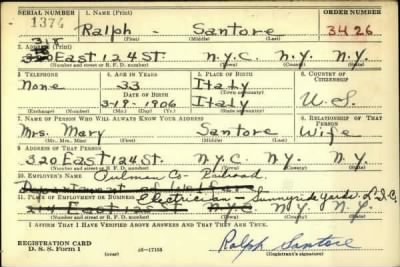 SERIAL NUMBER 1. NAME (Print) ORDER NUMBER
1374 Ralph - Santore 3426
(First) (Middle) (Last)
318
2. ADDRESS (Print)
320 East 124 St. N.Y.C. N.Y. N.Y.
(Number and street or R. F. D. number) (Town) (County) (State)
3. TELEPHONE 4. AGE IN YEARS 5. PLACE OF BIRTH 6. COUNTRY OF CITIZENSHIP
None 33 Italy
DATE OF BIRTH (Town or county)
3-19-1906 Italy U.S.
(Exchange) (Number) (Mo.) (Day) (Yr.) (State or country)
7. NAME OF PERSON WHO WILL ALWAYS KNOW YOUR ADDRESS 8. RELATIONSHIP OF THAT PERSON
Mrs. Mary Santore Wife
(Mr., Mrs., Miss) (First) (Middle) (Last)
9. ADDRESS OF THAT PERSON
320 East 124 St. N.Y.C. N.Y. N.Y.
(Number and street or R. F. D. number) (Town) (County) (State)
10. EMPLOYER'S NAME Pullman Co - Railroad
Department of Welfare
11. PLACE OF EMPLOYMENT OR BUSINESS Electrician - Sunnyside Yards L.I.C.
214 East 125 St. N.Y.C. N.Y. N.Y.
(Number and street or R. F. D. number) (Town) (County) (State)
I AFFIRM THAT I HAVE VERIFIED ABOVE ANSWERS AND THAT THEY ARE TRUE.
REGISTRATION CARD
D. S. S. Form 1 (over) 16-17105 Ralph Santore
(Registrant's signature)